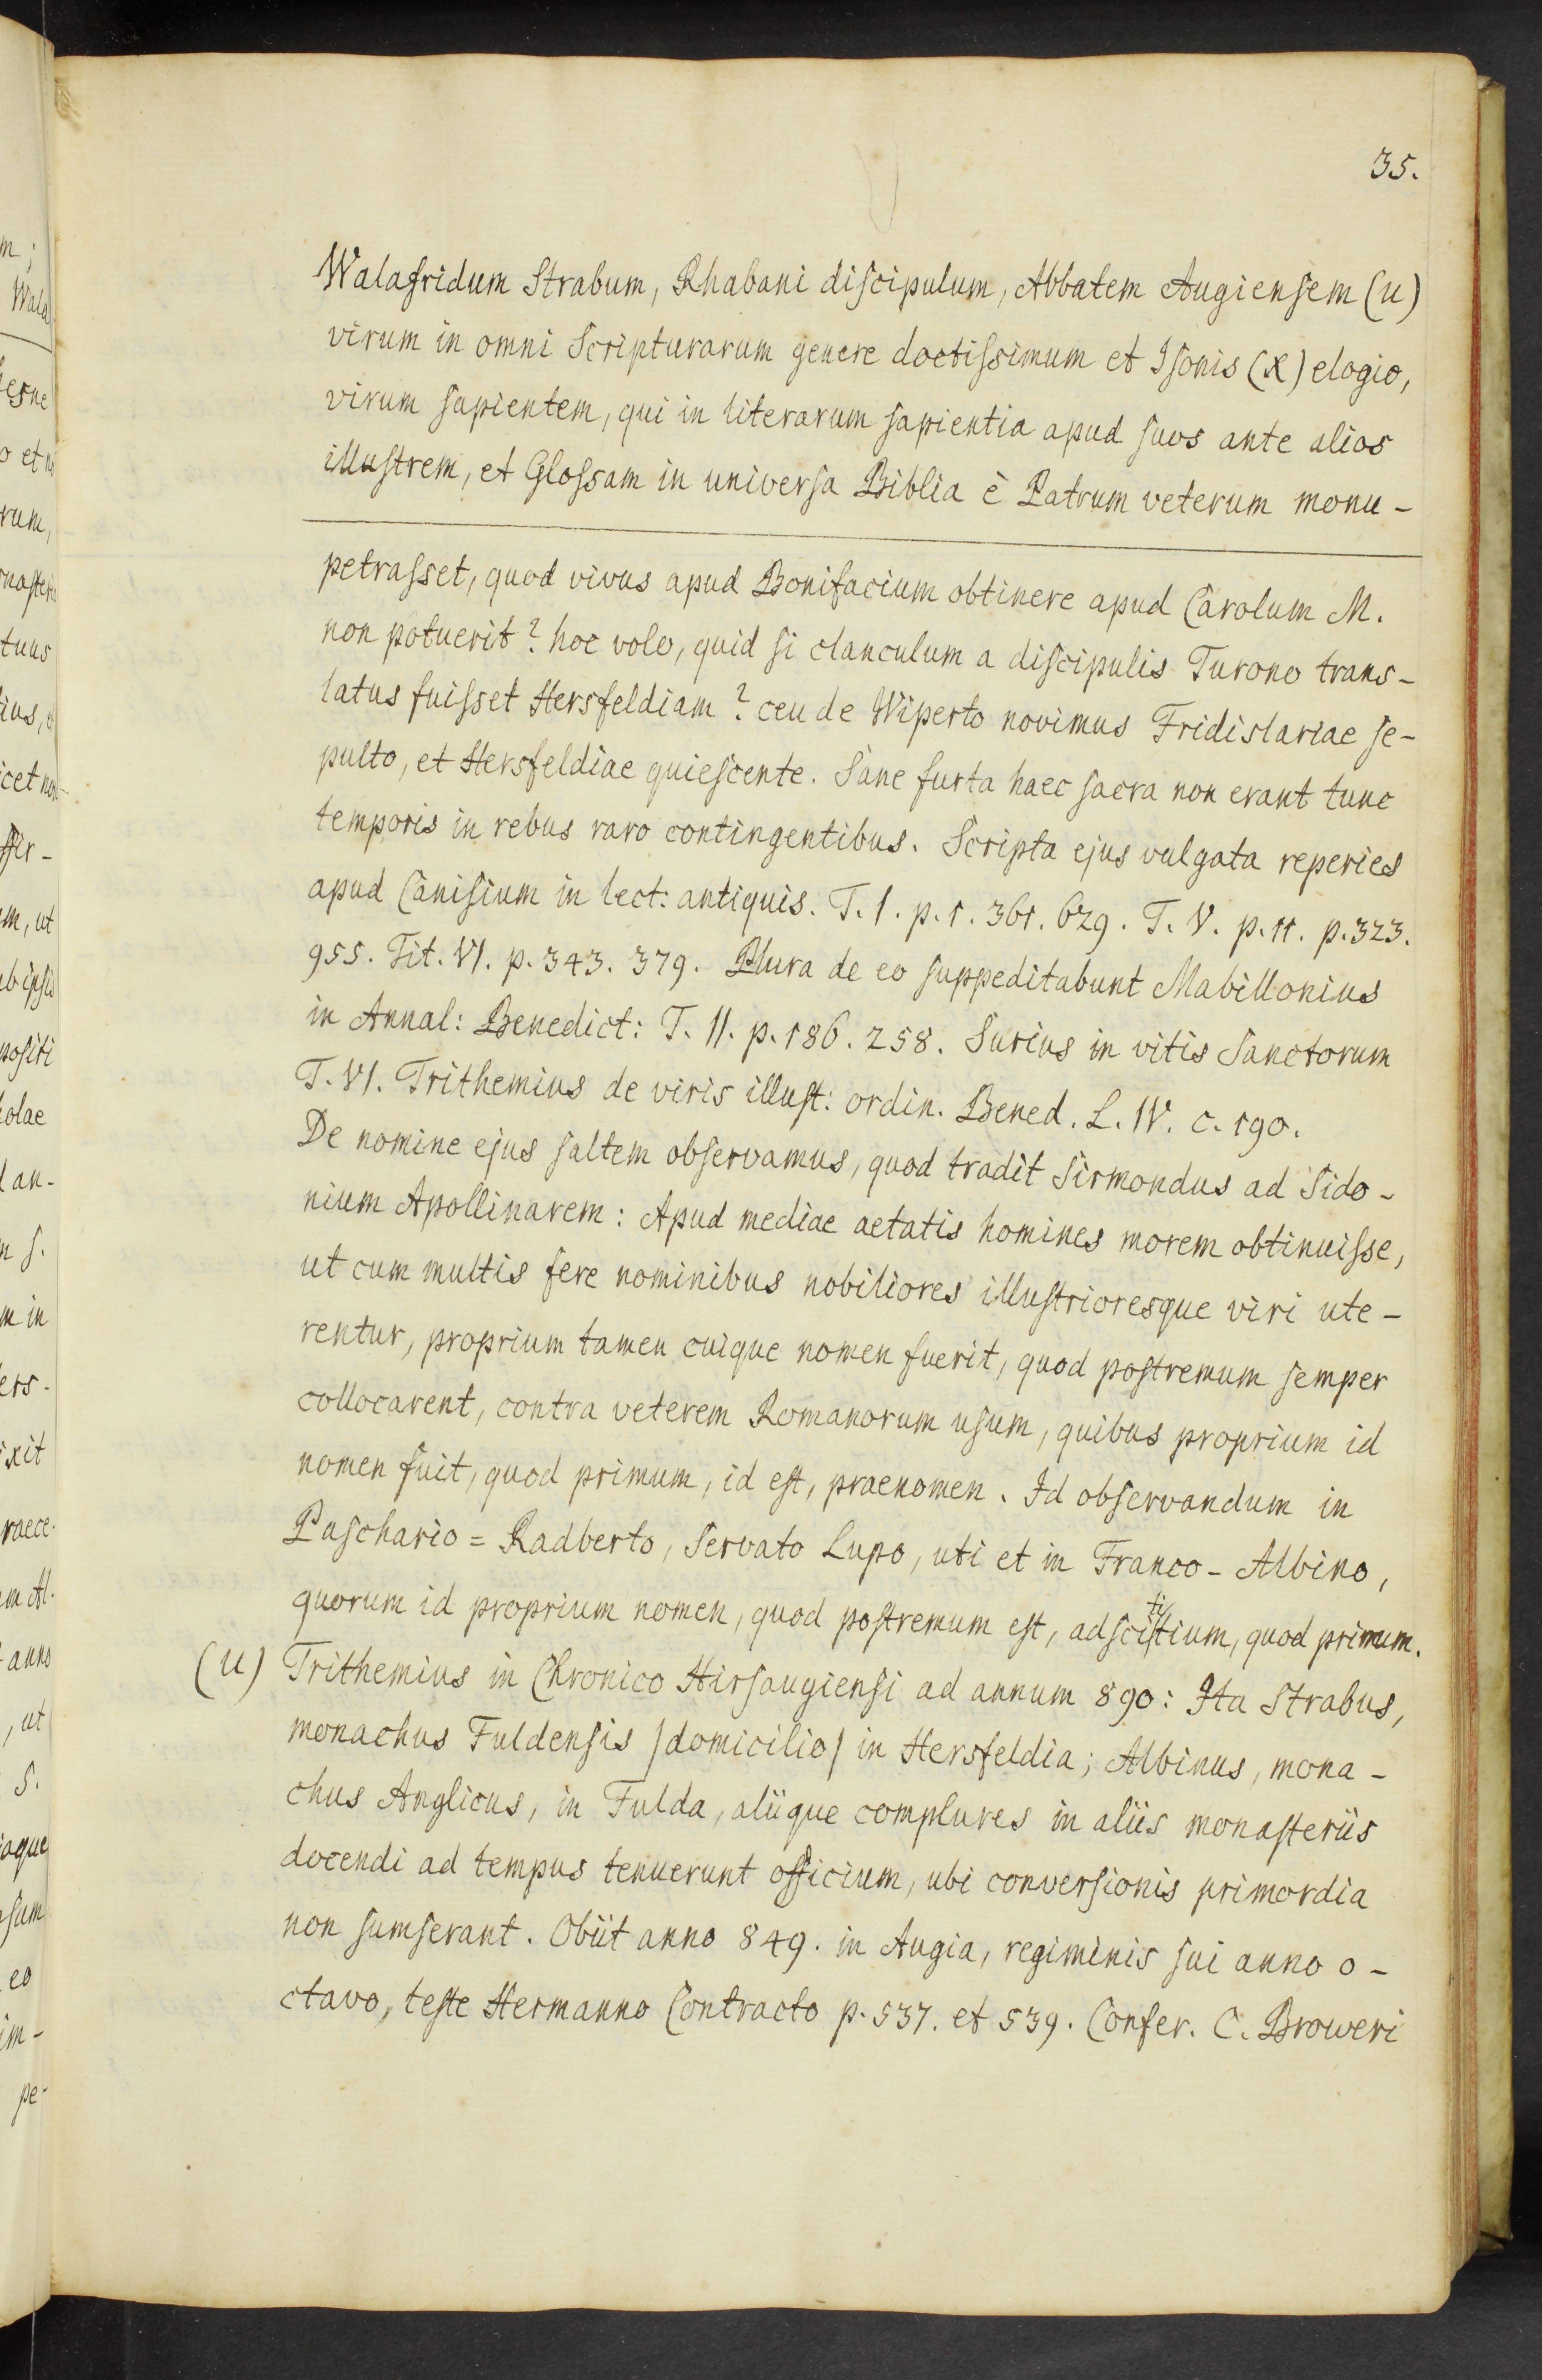 35.
Walafridum Strabum, Rhabani discipulum, Abbatem Augiensem (u)
virum in omni Scripturarum genere doctissimum et Isonis (x) elogio,
virum sapientem, qui in literarum sapientia apud suos ante alios
illustrem, et Glossam in universa Biblia è Patrum veterum monu-
petrasset, quod vivus apud Bonifacium obtinere apud Carolum M.
non potuerit? hoc volo, quid si clanculum a discipulis Turono trans-
latus fuisset Hersfeldiam? ceu de Wiperto novimus Fridislariae se-
pulto, et Hersfeldiae quiescente. Sane furta haec sacra non erant tunc
temporis in rebus raro contingentibus. Scripta ejus vulgata reperies
apud Canisium in lect: antiquis. T. I. p. 1. 361. 629. T. V. p. 11. p. 323.
955. Tit. VI. p. 343. 379. Plura de eo suppeditabunt Mabillonius
in Annal: Benedict: T. II. p. 186. 258. Surius in vitis Sanctorum
T. VI. Trithemius de viris illust: ordin. Bened. L. IV. c. 190.
De nomine ejus saltem observamus, quod tradit Sirmondus ad Sido-
nium Apollinarem: Apud mediae aetatis homines morem obtinuisse,
ut cum multis fere nominibus nobiliores illustrioresque viri ute-
rentur, proprium tamen cuique nomen fuerit, quod postremum semper
collocarent, contra veterem Romanorum usum, quibus proprium id
nomen fuit, quod primum, id est, praenomen. Id observandum in
Paschario = Radberto, Servato Lupo, uti et in Franco-Albino,
quorum id proprium nomen, quod postremum est, adscititium, quod primum.
(u) Trithemius in Chronico Hirsaugiensi ad annum 890: Ita Strabus,
monachus Fuldensis /domicilio/ in Hersfeldia; Albinus, mona-
chus Anglicus, in Fulda, aliique complures in aliis monasteriis
docendi ad tempus tenuerunt officium, ubi conversionis primordia
non sumserant. Obiit anno 849. in Augia, regiminis sui anno o-
ctavo, teste Hermanno Contracto p. 537. et 539. Confer. C. Broweri